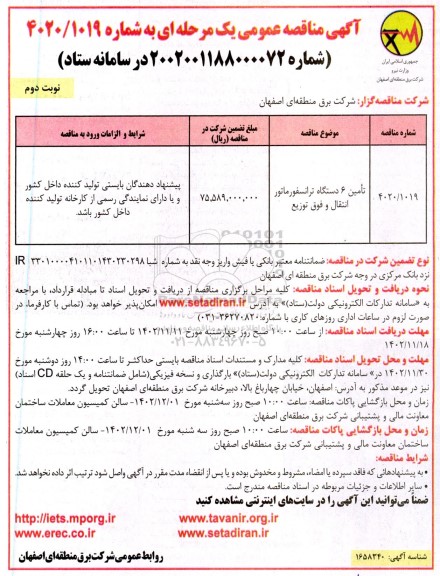 آگهی مناقصه عمومی یک مرحله ای به شماره ۴۰۲۰/۱۰۱۹
(شماره ۲۰۰۲۰۰۱۱۸۸۰۰۰۰۷۲ در سامانه ستاد)
جمهوری اسلامی ایران
وزارت نیرو
شرکت برق منطقه‌ای اصفهان
نوبت دوم
شرکت مناقصه‌گزار: شرکت برق منطقه‌ای اصفهان
شماره مناقصه
موضوع مناقصه
مبلغ تضمین شرکت در مناقصه (ریال)
شرایط و الزامات ورود به مناقصه
۴۰۲۰/۱۰۱۹
تأمین ۶ دستگاه ترانسفورماتور انتقال و فوق توزیع
۷۵,۵۸۹,۰۰۰,۰۰۰
پیشنهاد دهندگان بایستی تولید کننده داخل کشور و یا دارای نمایندگی رسمی از کارخانه تولید کننده داخل کشور باشد.
نوع تضمین شرکت در مناقصه: ضمانتنامه معتبر بانکی یا فیش واریز وجه نقد به شماره شبا IR ۳۳۰۱۰۰۰۰۴۱۰۱۱۰۱۴۳۰۲۳۰۲۹۸
نزد بانک مرکزی در وجه شرکت برق منطقه ای اصفهان
نحوه دریافت و تحویل اسناد مناقصه: کلیه مراحل برگزاری مناقصه از دریافت و تحویل اسناد تا مبادله قرارداد، با مراجعه
به «سامانه تدارکات الکترونیکی دولت(ستاد)» به آدرس www.setadiran.ir امکان‌پذیر خواهد بود. (تماس با کارفرما، در
صورت لزوم در ساعات اداری روزهای کاری با شماره: ۳۶۲۷۰۸۲۰-۰۳۱)
مهلت دریافت اسناد مناقصه: از ساعت ۱۰:۰۰ صبح روز چهارشنبه مورخ ۱۴۰۲/۱۱/۱۱ تا ساعت ۱۶:۰۰ روز چهارشنبه مورخ
۱۴۰۲/۱۱/۱۸
مهلت و محل تحویل اسناد مناقصه: کلیه مدارک و مستندات اسناد مناقصه بایستی حداکثر تا ساعت ۱۴:۰۰ روز دوشنبه مورخ
۱۴۰۲/۱۱/۳۰ در» سامانه تدارکات الکترونیکی دولت(ستاد)» بارگذاری و نسخه فیزیکی(شامل ضمانتنامه و یک حلقه CD اسناد)
نیز در موعد مذکور به آدرس: اصفهان، خیابان چهارباغ بالا، دبیرخانه شرکت برق منطقه‌ای اصفهان تحویل گردد.
زمان و محل بازگشایی پاکات مناقصه: ساعت ۱۰:۰۰ صبح روز سه‌شنبه مورخ ۱۴۰۲/۱۲/۰۱- سالن کمیسیون معاملات ساختمان
معاونت مالی و پشتیبانی شرکت برق منطقه‌ای اصفهان
زمان و محل بازگشایی پاکات مناقصه: ساعت ۱۰:۰۰ صبح روز سه شنبه مورخ ۱۴۰۲/۱۲/۰۱- سالن کمیسیون معاملات
ساختمان معاونت مالی و پشتیبانی شرکت برق منطقه‌ای اصفهان
شرایط مناقصه:
• به پیشنهادهائی که فاقد سپرده یا امضاء، مشروط و مخدوش بوده و یا پس از انقضاء مدت مقرر در آگهی واصل شود ترتیب اثر داده نخواهد شد.
• سایر اطلاعات و جزئیات مربوطه در اسناد مناقصه مندرج است.
ضمناً می‌توانید این آگهی را در سایت‌های اینترنتی مشاهده کنید
http://iets.mporg.ir
www.tavanir.org.ir
www.erec.co.ir
www.setadiran.ir
روابط عمومی شرکت برق منطقه‌ای اصفهان
شناسه آگهی: ۱۶۵۸۳۴۰